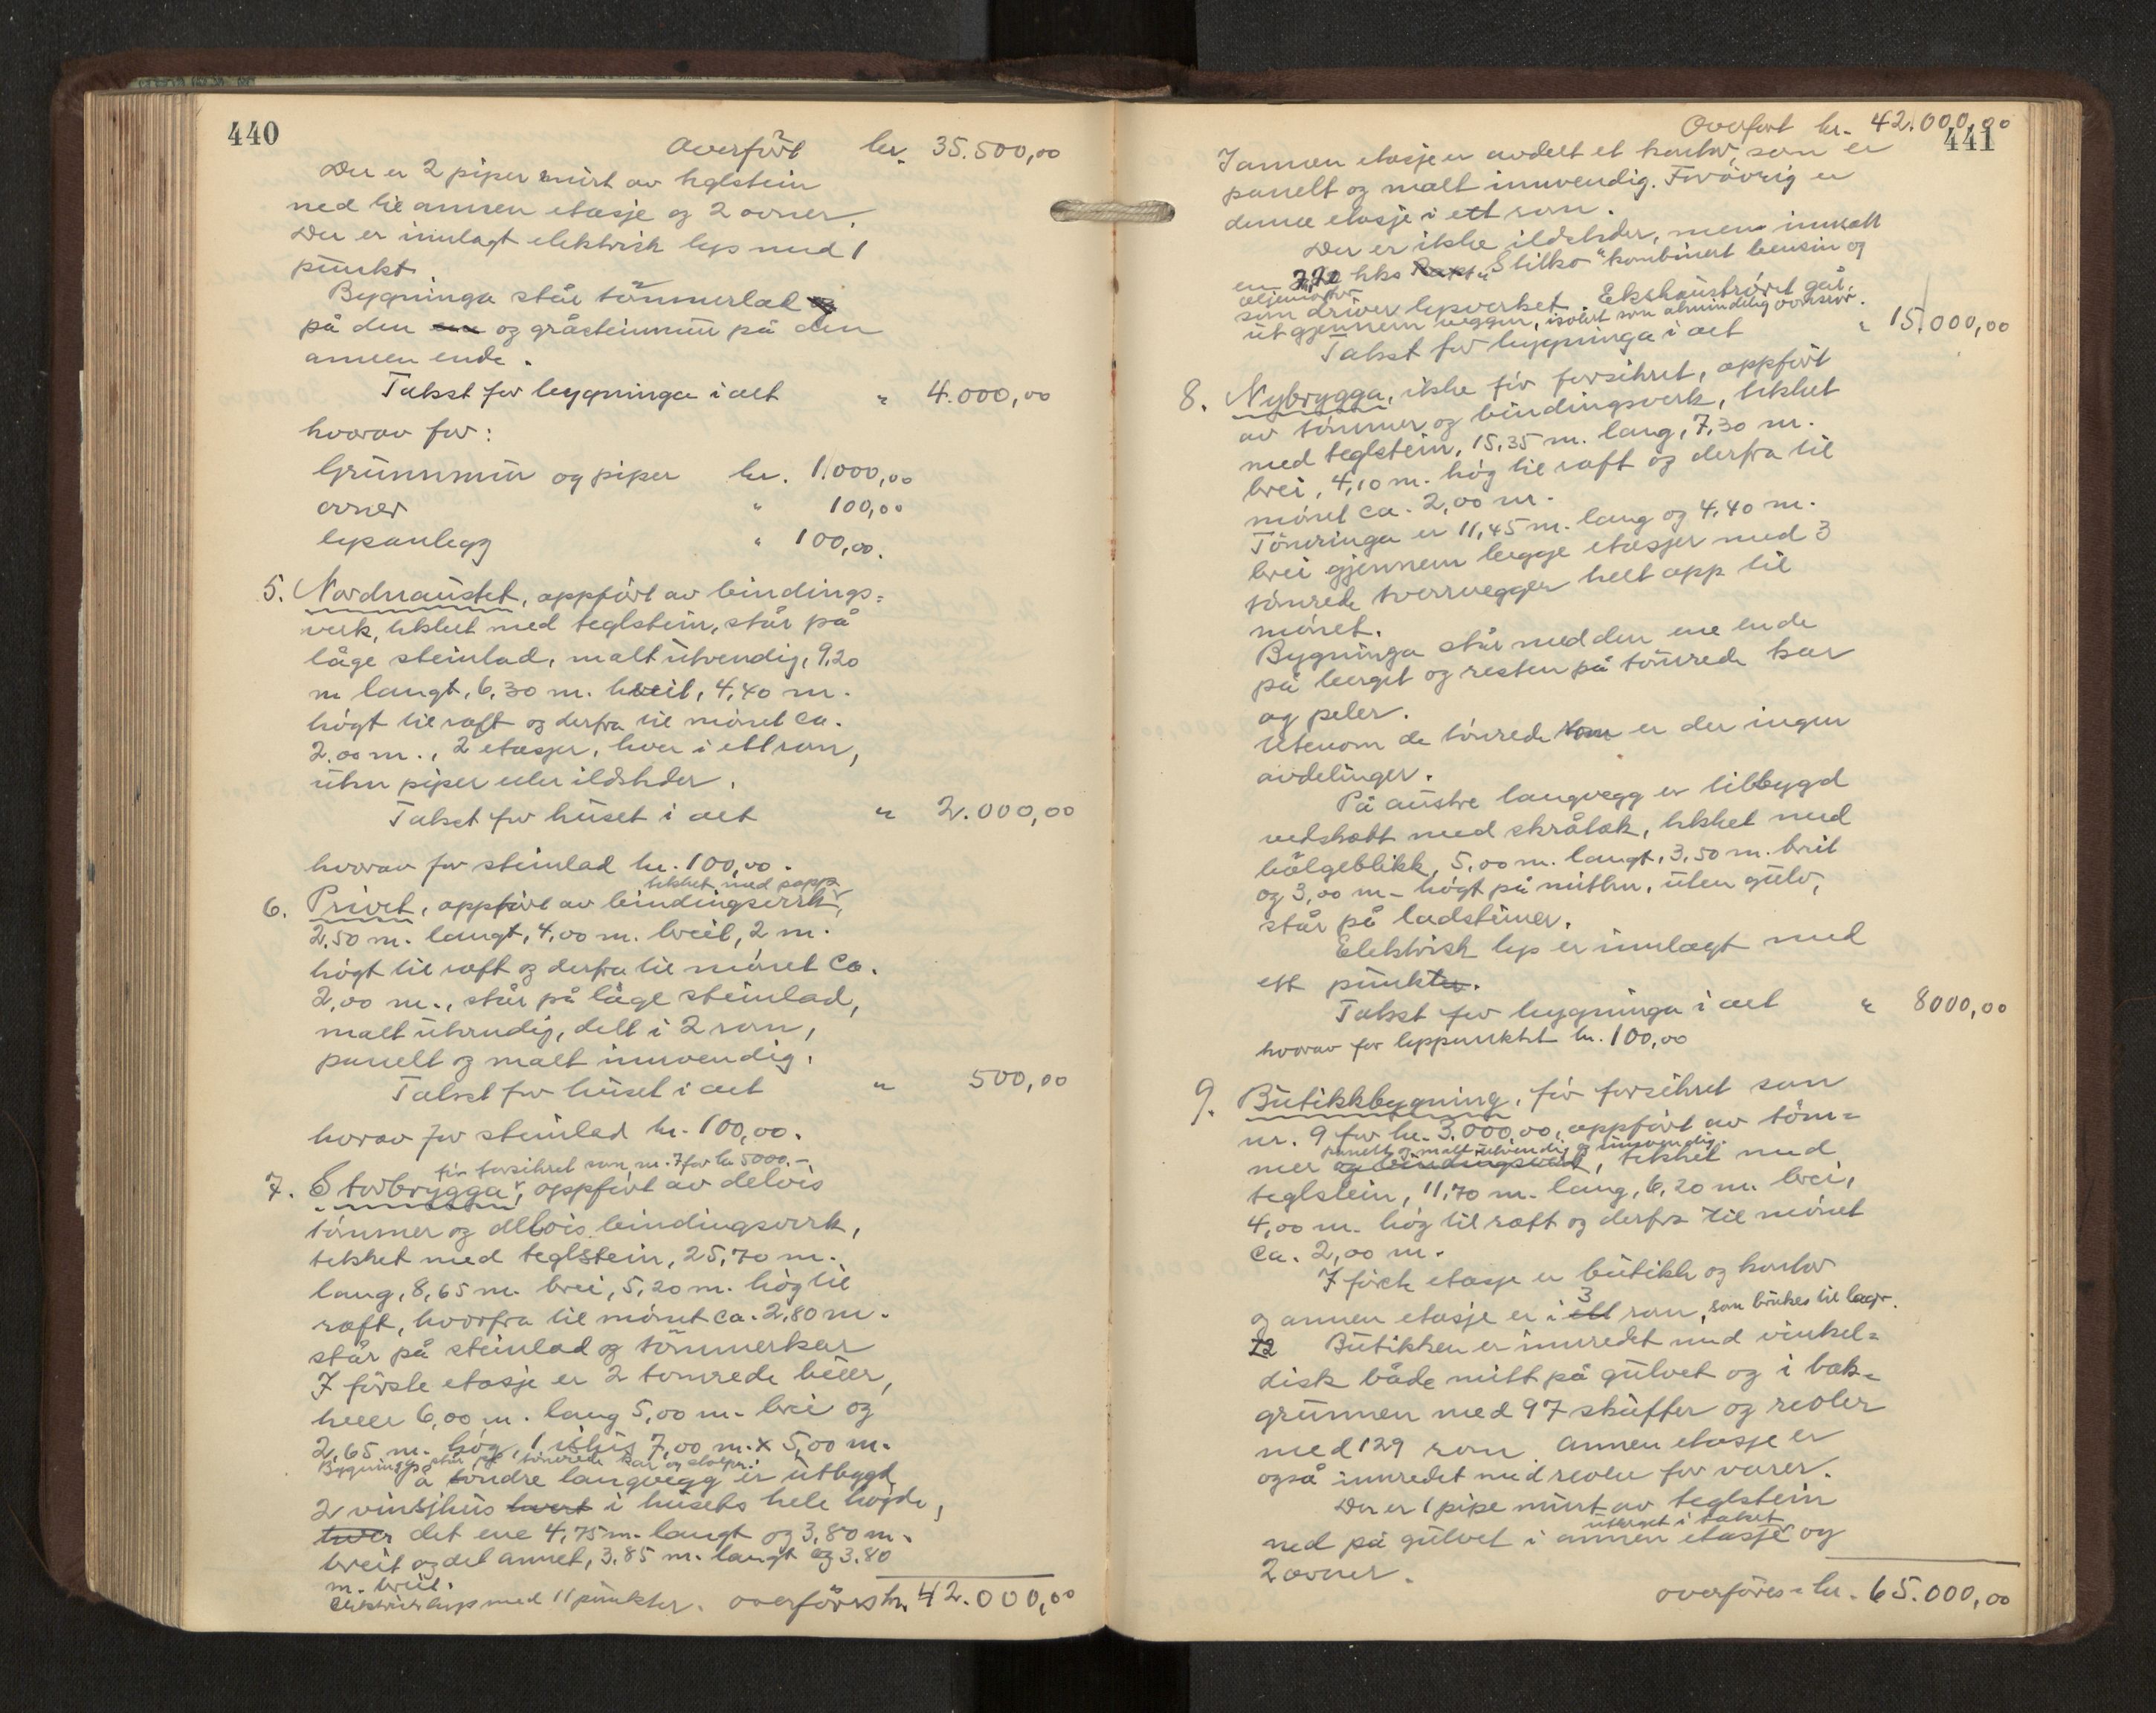 440
Overført kr. 35.500,00
Der er 2 piper murt av teglstein
ned til annen etasje og 2 ovner.
Der er innlagt elektrisk lys med 1
punkt.
Bygninga står tømmerlad og
på den ene og gråsteinmur på den
annen ende.
Takst for bygninga i alt " 4.000,00
hvorav for:
Grunnmur og piper kr. 1.000,00
ovner " 100,00
lysanlegg " 100,00.
5. Nordnaustet, oppført av bindings=
verk, tekket med teglstein, står på
låge steinlad, malt utvendig, 9,20
m langt, 6,30 m. breit, 4,40 m.
høgt til raft og derfra til mønet ca.
2,00 m., 2 etasjer, hver i ett rom,
uten piper eller ildsteder.
Takst for huset i alt " 2.000,00
hvorav for steinlad kr. 100,00.
tekket med papp
6. Privet, oppført av bindingsverk,
2,50 m. langt, 4,00 m. breit, 2 m.
høgt til raft og derfra til mønet ca.
2,00 m., står på låge steinlad,
malt utvendig, delt i 2 rom,
panelt og malt innvendig.
Takst for huset i alt " 500,00
hvorav for steinlad kr. 100,00.
før forsikret som nr. 7 for kr 5000.-
7. Storbrygga, oppført av delvis
tømmer og delvis bindingsverk,
tekket med teglstein, 25,70 m.
lang, 8,65 m. brei, 5,20 m. høg til
raft, hvorfra til mønet ca. 2,80 m.
står på steinlad og tømmerkar
I første etasje er 2 tømrede buer,
hver 6,00 m. lang 5,00 m. brei og
2,65 m. høg, 1 ishus 7,00 m. x 5,00 m.
Bygninga står på tømrede kar og stolper.
På søndre langvegg er utbygt
2 vinsjhus hvert i husets hele høgde,
hver det ene 4,75 m. langt og 3,80 m.
breit og det annet, 3,85 m. langt og 3.80
m. breit.
Elektrisk lys med 11 punkter. overføres kr. 42.000,00
441
Overført kr. 42.000,00
I annen etasje er avdelt et kontor, som er
panelt og malt innvendig. Forøvrig er
denne etasje i ett rom.
Der er ikke ildsteder, men innsatt
en hks "Slilko" kombinert bensin og
oljemotor
som driver lysverket. Ekshaustrøret går
ut gjennem veggen, isolert som almindelig ovnsrør.
Takst for bygninga i alt " 15.000,00
8. Nybrygga, ikke før forsikret, oppført
av tømmer og bindingsverk, tekket
med teglstein, 15,35 m. lang, 7,30 m.
brei, 4,10 m. høg til raft og derfra til
mønet ca. 2,00 m.
Tømringa er 11,45 m. lang og 4,40 m.
brei gjennem begge etasjer med 3
tømrede tverrvegger helt opp til
mønet.
Bygninga står med den ene ende
på berget og resten på tømrede kar
og peler.
Utenom de tømrede rom er der ingen
avdelinger.
På austre langvegg er tilbygd
vedskott med skråtak, tekket med
bølgeblikk, 5,00 m. langt, 3,50 m. breit
og 3,00 m. høgt på midten, uten gulv,
står på ladsteiner.
Elektrisk lys er innlagt med
ett punkter.
Takst for bygninga i alt " 8000,00
hvorav for lyspunktet kr. 100,00
9. Butikkbygning, før forsikret som
nr. 9 for kr. 3.000,00, oppført av tøm=
panelt og malt utvendig og innvendig.
mer og bindingsverk, tekket med
teglstein, 11,70 m. lang, 6,20 m. brei,
4,00 m. høg til raft og derfra til mønet
ca. 2,00 m.
I første etasje er butikk og kontor
og annen etasje er i ett 3 rom, som brukes til lager.
12 Butikken er innredet med vinkel=
disk både midt på gulvet og i bak=
grunnen med 97 skuffer og reoler
med 129 rom. Annen etasje er
også innredet med reoler for varer.
Der er 1 pipe murt av teglstein
ned på gulvet i annen etasje og
2 ovner.
overføres kr. 65.000,00